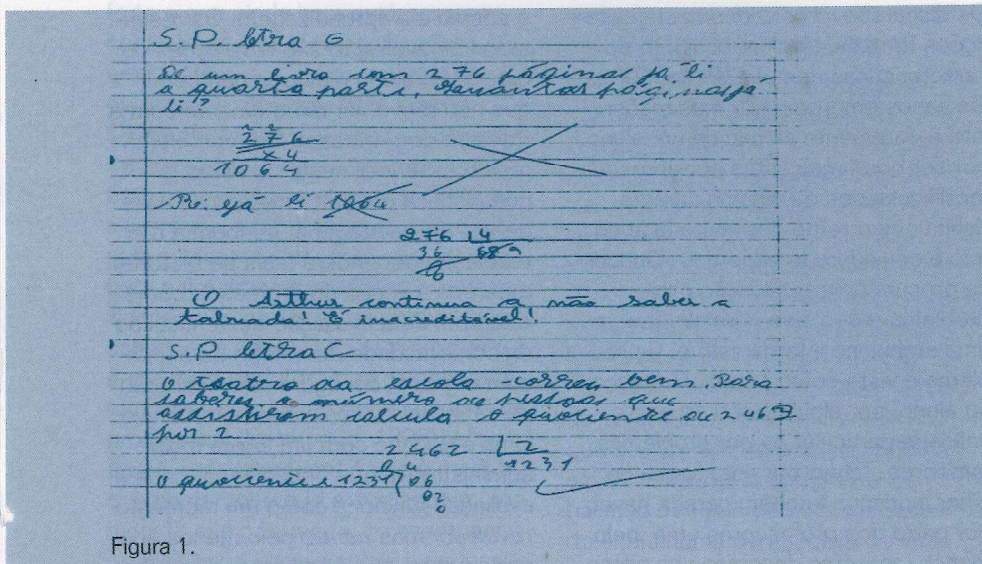 S.P. letra G
De um livro com 276 páginas já li
a quarta parte. Quantas páginas já
li?
276
x4
1064
R: já li 1064
276 4
36 689
0
O Arthur continua a não saber a
tabuada! É inacreditável!
S.P letra C
O teatro da escola correu bem. Para
saberes o número de pessoas que
assistiram calcula o quociente de 2462
por 2
2462 2
04 1231
O quociente é 1231 06
02
0
Figura 1.